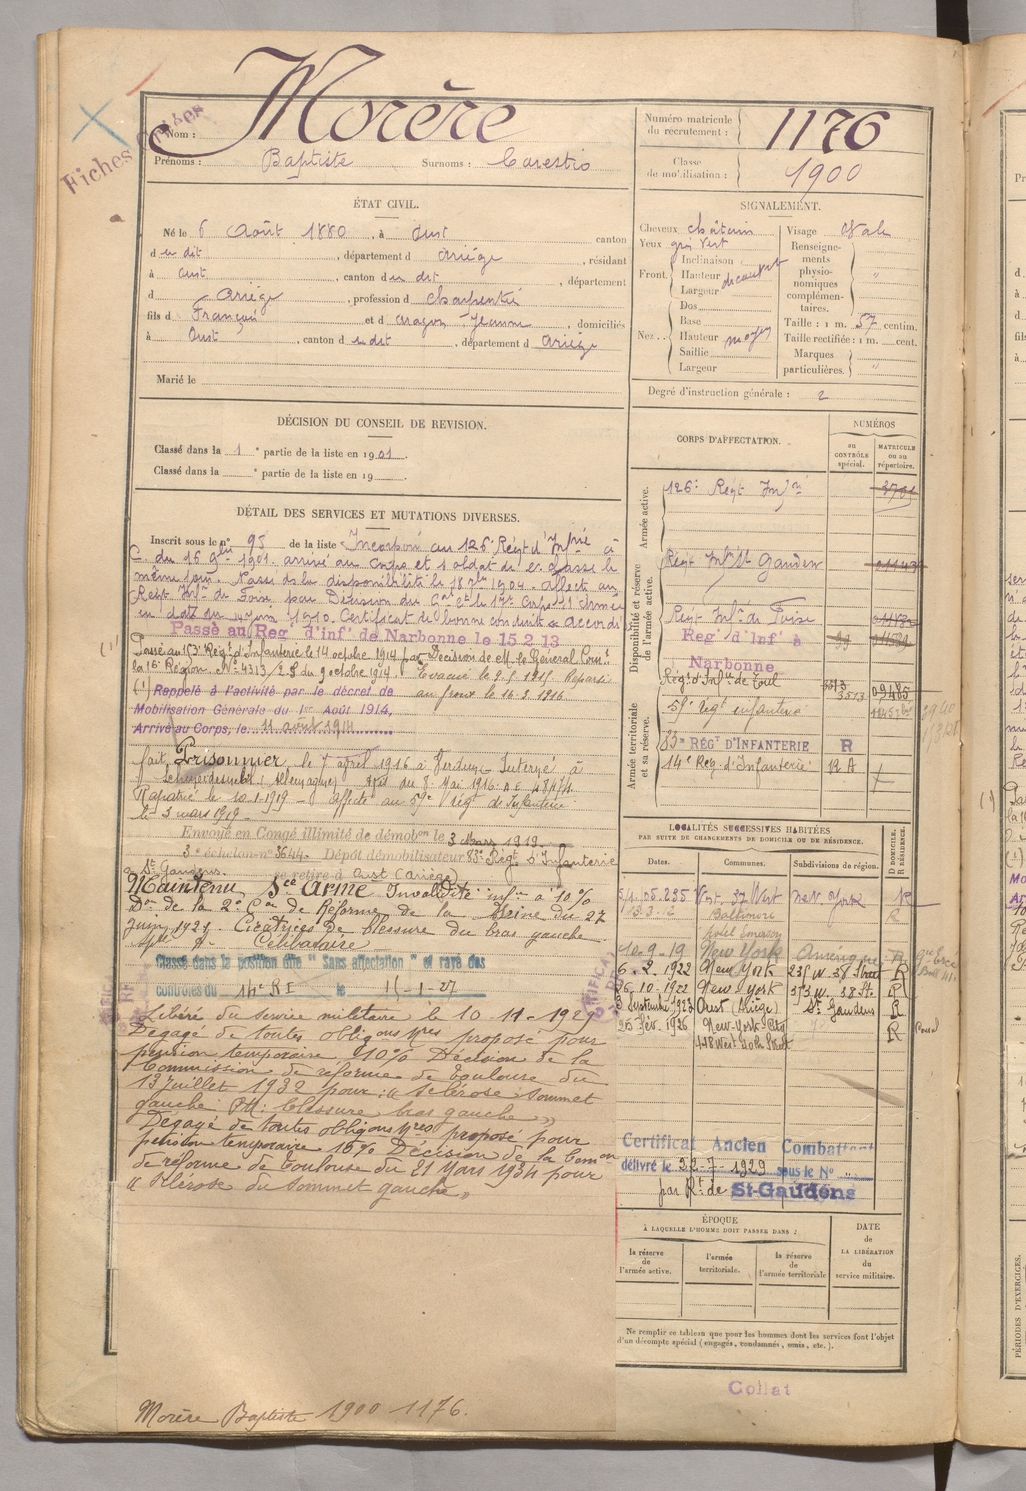 Fiches
Nom : Morère
Prénoms : Baptiste Surnoms : Carestio
Numéro matricule du recrutement : 1176
Classe de mobilisation : 1900
ÉTAT CIVIL.
Né le 6 Août 1880, à Oust canton
du dit, département d Ariège, résidant
à Oust, canton du dit, département
d Ariège, profession d charpentier
fils d François et d Aragon Jeanne, domiciliés
à Oust, canton du dit, département d Ariège
Marié le
SIGNALEMENT.
Cheveux châtain
Yeux gris vert
Front. Inclinaison
Hauteur découvert
Largeur
Nez Dos
Base
Hauteur moyen
Saillie
Largeur
Visage ovale
Renseignements physionomiques complémentaires. "
Taille : 1 m. 57 centim.
Taille rectifiée : 1 m. cent.
Marques particulières. "
Degré d'instruction générale : 2
DÉCISION DU CONSEIL DE REVISION.
Classé dans la 1e partie de la liste en 1901.
Classé dans la e partie de la liste en 19
DÉTAIL DES SERVICES ET MUTATIONS DIVERSES.
Inscrit sous le n° 95 de la liste Incorporé au 126e Régt d'Infrie à
C. du 16 9bre 1901. arrivé au corps et soldat de 2e classe le
même jour. Passé ds la disponibilité le 18 1904. Affecté au
Régt Infie de Foix par Décision du 17e Corps d'Armée
en date du 1910. Certificat de bonne conduite accordé
Passé au Reg d'inf' de Narbonne le 15.2.13
Passé au 153e Régt d'Infanterie le 14 octobre 1914 par Décision de M. le Général Comt
la 16e Région N° 4313/2.S du 9 octobre 1914. Evacué le 2.5.1915 Reparti
au front le 16.2.1916
(1) Rappelé à l'activité par le décret de
Mobilisation Générale du 1er Août 1914,
Arrivé au Corps, le 11 août 1914
fait Prisonnier le 7 avril 1916 à Verdun Interné à
(Allemagne) avis du 8 Mai 1916
Rapatrié le 10-1-1919 - affecté au 59e rég de Infanterie
le 3 mars 1919.
Envoyé en Congé illimité de démobon le 3 Mars 1919.
3e échelon n° 3644. Dépôt démobilisateur 83e Régt d'Infanterie
St Gaudens. se retire à Oust (Ariège)
Maintenu Sce Armé Invalidité infre à 10%
Don de la 2e Con de Réforme de la Seine du 27
juin 1921. Cicatrices de blessure du bras gauche
Célibataire
Classé dans la position dite "Sans affectation" et rayé des
contrôles du 14e RI le 15-1-27
Libéré du service militaire le 10-11-1929
Dégagé de toutes obligons mres proposé pour
pension temporaire 10% Décision de la
Commission de réforme de Toulouse du
13 juillet 1932 pour : « Sclérose sommet
gauche. blessure bras gauche »
Dégagé de toutes obligons mres proposé pour
pension temporaire 10% Décision de la Comon
de réforme de Toulouse du 21 Mars 1934 pour
« Sclérose du sommet gauche »
Morère Baptiste 1900 1176.
CORPS D'AFFECTATION.
NUMÉROS
au CONTRÔLE spécial.
MATRICULE ou au répertoire.
Armée active.
126e Régt Infrie 3701
Disponibilité et réserve de l'armée active.
Régt Infie St Gaudens
Régt Infie de Foix
Reg' d'Inf' à Narbonne
Armée territoriale et sa réserve.
Régt d'Infie de Toul
59e régt infanterie
83e RÉGt D'INFANTERIE R
14e Rég. d'Infanterie RA
LOCALITÉS SUCCESSIVES HABITÉES
PAR SUITE DE CHANGEMENTS DE DOMICILE OU DE RÉSIDENCE.
Dates. Communes. Subdivisions de région. D DOMICILE. R RÉSIDENCE.
235 West 37 West New York R
Baltimore R
Hotel Emerson
10.9.19 New York Amérique R
6.2.1922 New York 235 W. 38 Street R
26.10.1922 New-York 353 W. 38 St. R
Septembre 1923 Oust (Ariège) St Gaudens R
Fév. 1926 New-York City R
448 West 40th Street
Certificat Ancien Combattant
délivré le 22-7-1929 sous le N° "
par Rt de St-Gaudens
ÉPOQUE
À LAQUELLE L'HOMME DOIT PASSER DANS :
la réserve de l'armée active.
l'armée territoriale.
la réserve de l'armée territoriale
DATE de LA LIBÉRATION du service militaire.
Ne remplir ce tableau que pour les hommes dont les services font l'objet
d'un décompte spécial (engagés, condamnés, omis, etc.).
Collat
PÉRIODES D'EXERCICES.